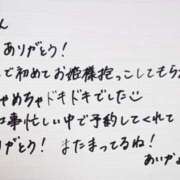 ん
ありがとう!
で初めてお姫様抱っこしてもら
ゃめちゃドキドキでした
事忙しい中で予約してくれて
りがとう! またまってるね!
あいか